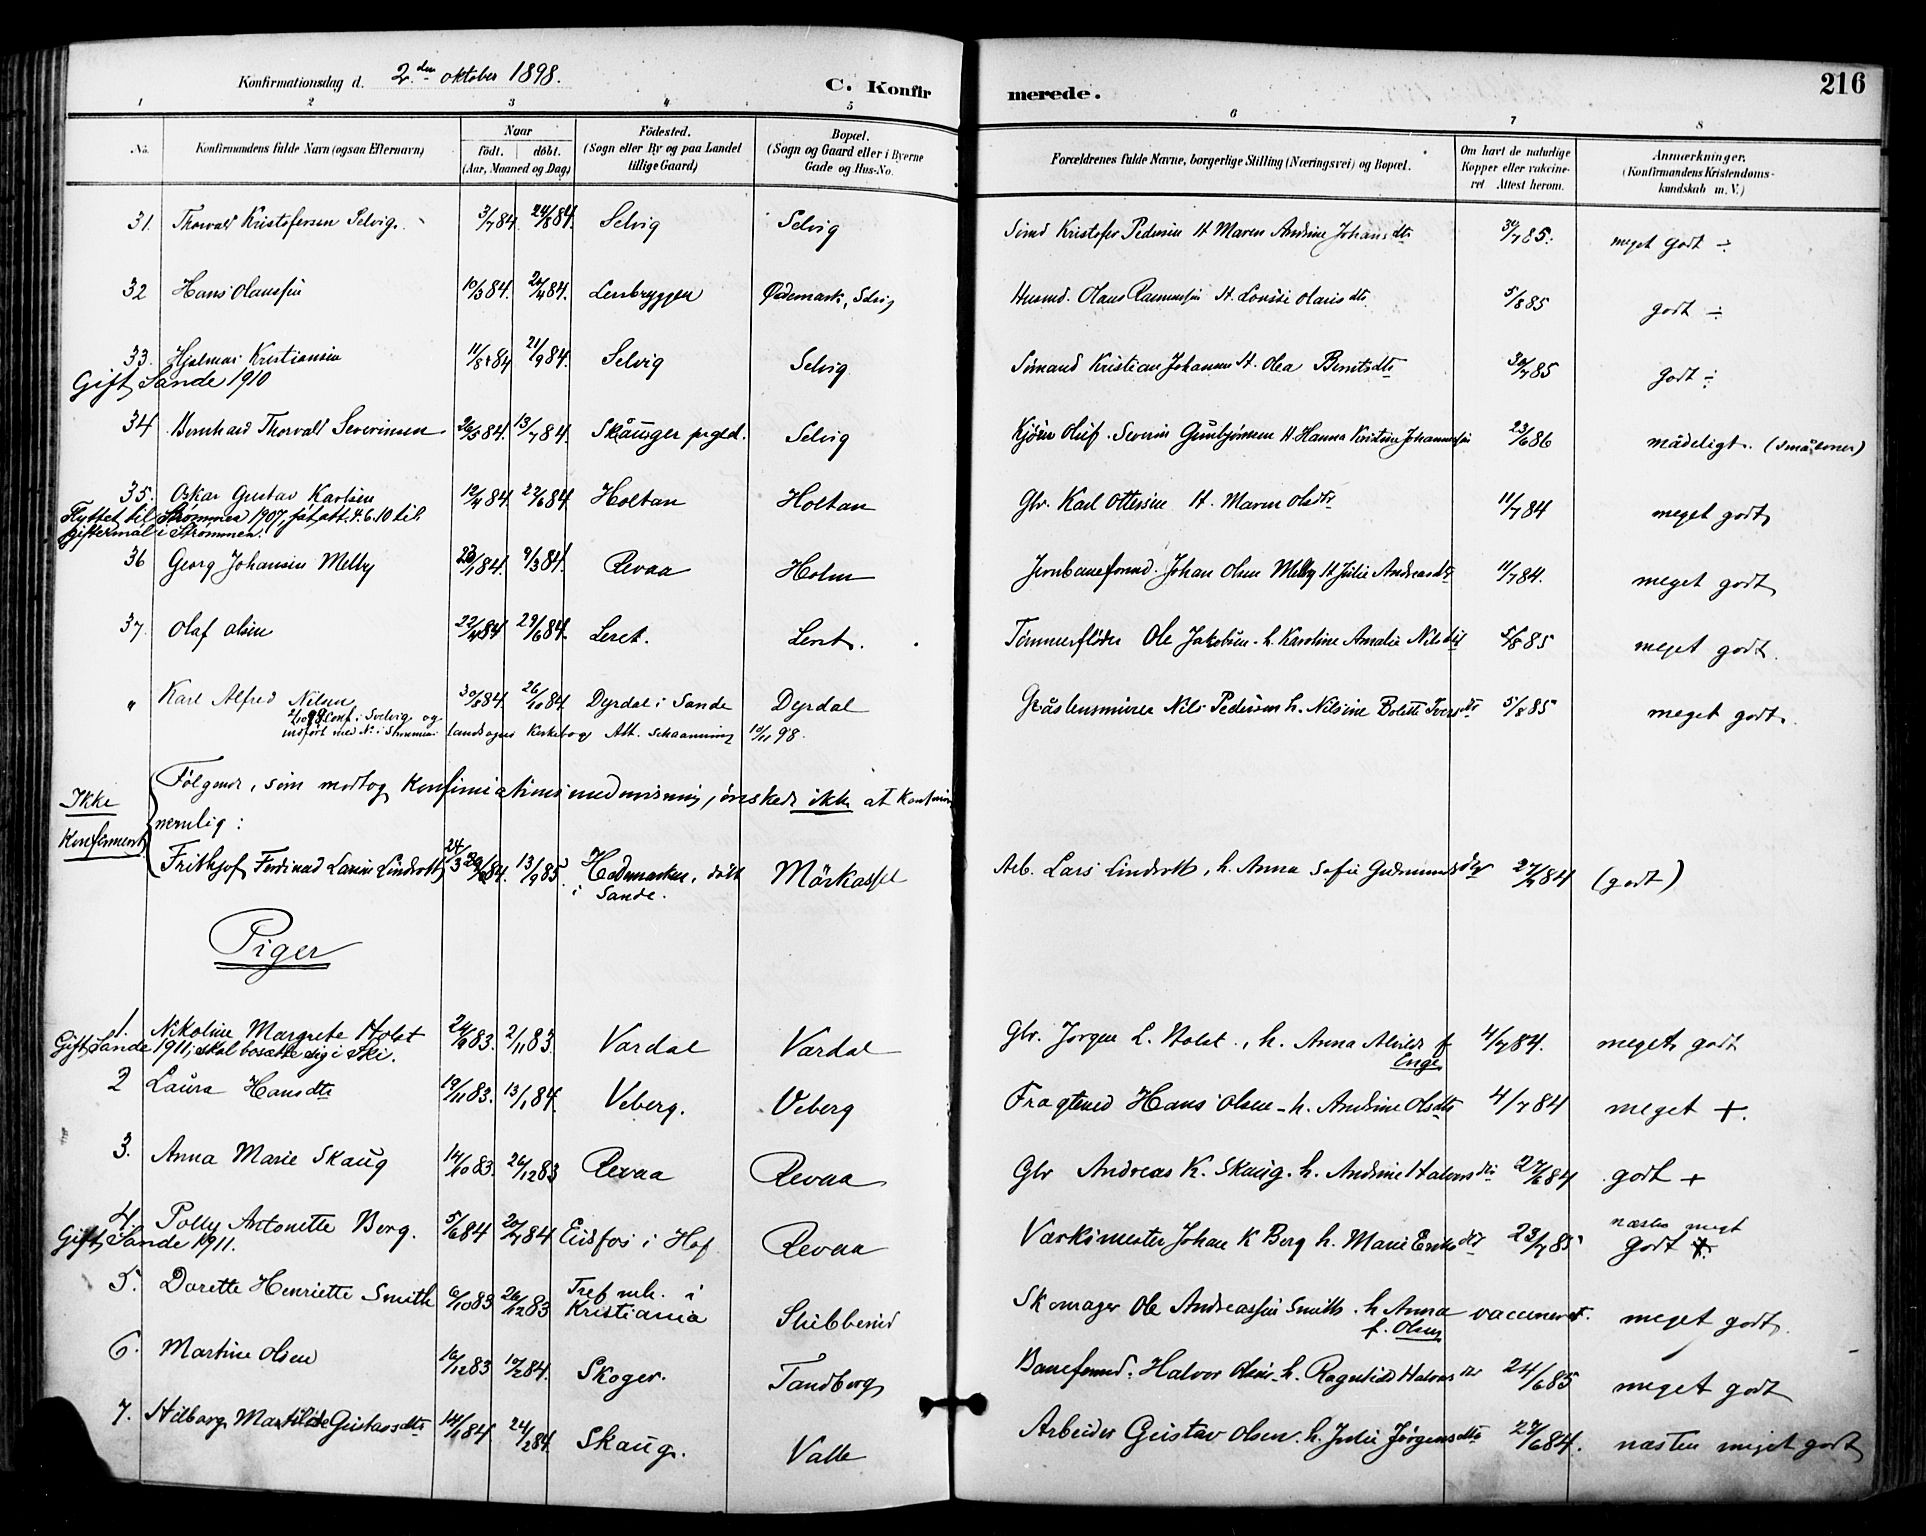 216
Konfirmationsdag d. 2den oktober 1898.
C. Konfirmerede.
1 2 3 4 5 6 7 8
No.
Konfirmandens fulde Navn (ogsaa Efternavn)
Naar
födt. döbt.
(Aar, Maaned og Dag)
Födested.
(Sogn eller By og paa Landet
tillige Gaard)
Bopæl.
(Sogn og Gaard eller i Byerne
Gade og Hus-No.
Forældrenes fulde Navne, borgerlige Stilling (Næringsvei) og Bopæl.
Om havt de naturlige
Kopper eller vakcine-
ret Attest herom.
Anmærkninger.
(Konfirmandens Kristendoms-
kundskab m. V.)
31. Thorvald Kristofersen Selvig. 3/7 84. 24/8 84. Selvig Selvig Sömd Kristofer Pedersen H. Maren Andrine Johansdtr 85. meget godt ÷
32 Hans Olaussen 10/3 84. 84. Lersbryggen Ødemark, Selvig Husmd. Olaus Rasmussen H. Lovise Olausdtr 5/8 85 godt ÷
33. Hjalmar Kristiansen 11/8 84 21/9 84. Selvig Selvig Sömand Kristian Johansen H. Olea Berntsdtr 30/7 85 godt ÷
Gift Sande 1910
34 Bernhard Thorvald Severinsen 26/5 84. 13/7 84. Skauger prgjd. Selvig Severin Gunbjörnsen H. Hanna Kristine Johannessen 23/6 86 mådeligt. (småevner)
35. Oskar Gustav Karlsen 12/4 84. 22/6 84. Holtan Holtan Gbr. Karl Ottersen H. Maren Olsdtr 11/7 84 meget godt
Flyttet til Strømmen 1907, fåt att. 4.6.10 til
giftermål i Strømmen.
36 Georg Johansen Melby 23/1 84. 9/3 84. Revaa Holm Jernbaneformd. Johan Olsen Melby H. Julie Andreasdtr 11/7 84. meget godt
37. Olaf Olsen 22/4 84 29/6 84. Leret. Leret. Tömmerflöder Ole Jakobsen h. Karoline Amalie Nilsdtr 5/8 85 meget godt.
" Karl Alfred Nilsen 30/8 84. 26/10 84. Dyrdal i Sande Dyrdal Nils Pedersen h. Nilsine Bolette Iversdtr 5/8 85 meget godt.
2/10 98 Conf. i Svelvig og
indført med No. i Strømmen Landsogns Kirkebog Att. Schaanning 10/11 98.
Ikke
Konfirmeret
Følgende, som modtog Konfirmationsundervisning, ønskede ikke at konfirm
nemlig:
Frithjof Ferdinad Larsen Lindroth 24/3 84. 13/9 85. Hedemarken, döbt i Sande. Mörkassel Arb. Lars Lindroth, h. Anna Sofie Gudmundsdtr 84 (godt)
Piger
1. Nikoline Margrete Holst 24/9 83. 2/11 83. Vardal Vardal Gbr. Jorgen L. Holst., h. Anna Alvilde f. Enge 4/7 84. meget godt
Gift Sande 1911, skal bosætte sig i Ski.
2 Laura Hansdtr 19/11 83. 13/1 84. Veberg. Veberg Fragtemd Hans Olsen h. Andrine Olsdtr 4/7 84 meget +.
3. Anna Marie Skaug 14/10 83. 26/12 83 Revaa Revaa Gbr Andreas K. Skaug. h. Andrine Halvorsdtr 27/6 84 godt +
4. Polly Antonette Berg. 5/6 84 20/7 84 Eidsfos i Hof Revaa Værksmester Johan K Berg h. Marie Eriksdtr 23/7 85 næsten meget godt
Gift Sande 1911.
5. Dorette Henriette Smith 6/10 83 26/12 83 Tref. mh. i Kristiania Stibberud Skomager Ole Andreassen Smith. h Anna f. Olsen vaccineret. meget godt.
6. Martine Olsen 16/12 83 10/2 84. Skoger. Tandberg Baneformd. Halvor Olsen h. Ragnhild Halvorsdtr 24/6 85 meget godt
7. Hilborg Matilde Gustavsdtr 14/1 84. 24/2 84. Skaug. Valle Arbeider Gustav Olsen. h. Julie Jørgensdtr 27/6 84. næsten meget godt